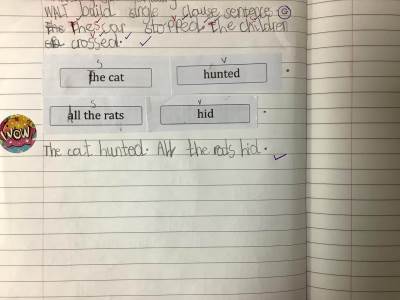 WALT build single clause sentences. G
The car stopped. The children
crossed.
S V
the cat hunted .
S V
all the rats hid .
WOW
The cat hunted. All the rats hid.